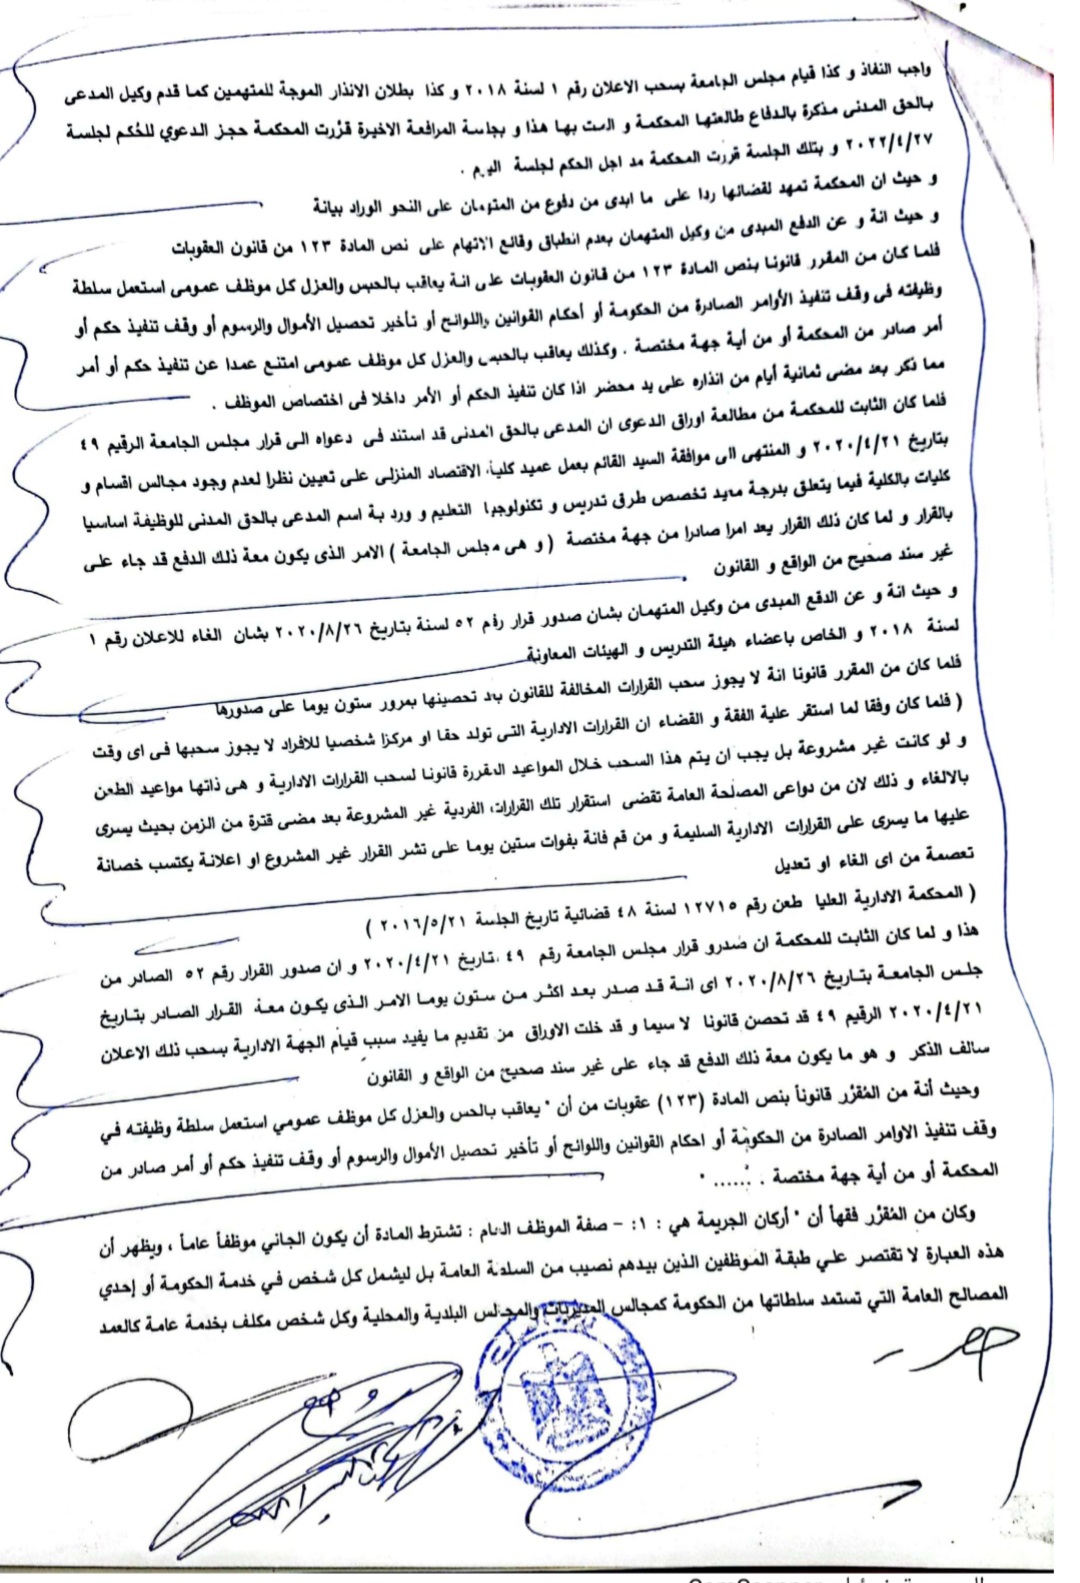 واجب النفاذ و كذا قيام مجلس الجامعة بسحب الاعلان رقم ١ لسنة ٢٠١٨ و كذا بطلان الانذار الموجة للمتهمين كما قدم وكيل المدعى
بالحق المدنى مذكرة بالدفاع طالعتها المحكمة و المت بها هذا و بجلسة المرافعة الاخيرة قرَّرت المحكمة حجز الدعوي للحُكم لجلسة
٢٠٢٢/٤/٢٧ و بتلك الجلسة قررت المحكمة مد اجل الحكم لجلسة اليوم .
و حيث ان المحكمة تمهد لقضائها ردا على ما ابدى من دفوع من المتهمان على النحو الوراد بيانة
و حيث انة و عن الدفع المبدى من وكيل المتهمان بعدم انطباق وقائع الاتهام على نص المادة ١٢٣ من قانون العقوبات
فلما كان من المقرر قانونا بنص المادة ١٢٣ من قانون العقوبات على انة يعاقب بالحبس والعزل كل موظف عمومى استعمل سلطة
وظيفته فى وقف تنفيذ الأوامر الصادرة من الحكومة أو أحكام القوانين واللوائح أو تأخير تحصيل الأموال والرسوم أو وقف تنفيذ حكم أو
أمر صادر من المحكمة أو من أية جهة مختصة . وكذلك يعاقب بالحبس والعزل كل موظف عمومى امتنع عمدا عن تنفيذ حكم أو أمر
مما ذكر بعد مضى ثمانية أيام من انذاره على يد محضر اذا كان تنفيذ الحكم أو الأمر داخلا فى اختصاص الموظف .
فلما كان الثابت للمحكمة من مطالعة اوراق الدعوى ان المدعى بالحق المدنى قد استند فى دعواه الى قرار مجلس الجامعة الرقيم ٤٩
بتاريخ ٢٠٢٠/٤/٢١ و المنتهى الى موافقة السيد القائم بعمل عميد كلية الاقتصاد المنزلى على تعيين نظرا لعدم وجود مجالس اقسام و
كليات بالكلية فيما يتعلق بدرجة معيد تخصص طرق تدريس و تكنولوجيا التعليم و ورد بة اسم المدعى بالحق المدنى للوظيفة اساسيا
بالقرار و لما كان ذلك القرار يعد امرا صادرا من جهة مختصة ( و هى مجلس الجامعة ) الامر الذى يكون معة ذلك الدفع قد جاء على
غير سند صحيح من الواقع و القانون
و حيث انة و عن الدفع المبدى من وكيل المتهمان بشان صدور قرار رقم ٥٢ لسنة بتاريخ ٢٠٢٠/٨/٢٦ بشان الغاء للاعلان رقم ١
لسنة ٢٠١٨ و الخاص باعضاء هيئة التدريس و الهيئات المعاونة
فلما كان من المقرر قانونا انة لا يجوز سحب القرارات المخالفة للقانون بعد تحصينها بمرور ستون يوما على صدورها
( فلما كان وفقا لما استقر علية الفقة و القضاء ان القرارات الادارية التى تولد حقا او مركزا شخصيا للافراد لا يجوز سحبها فى اى وقت
و لو كانت غير مشروعة بل يجب ان يتم هذا السحب خلال المواعيد المقررة قانونا لسحب القرارات الادارية و هى ذاتها مواعيد الطعن
بالالغاء و ذلك لان من دواعى المصلحة العامة تقضى استقرار تلك القرارات الفردية غير المشروعة بعد مضى فترة من الزمن بحيث يسرى
عليها ما يسرى على القرارات الادارية السليمة و من قم فانة بفوات ستين يوما على تشر القرار غير المشروع او اعلانة يكتسب خصانة
تعصمة من اى الغاء او تعديل
( المحكمة الادارية العليا طعن رقم ١٢٧١٥ لسنة ٤٨ قضائية تاريخ الجلسة ٢٠١٦/٥/٢١ )
هذا و لما كان الثابت للمحكمة ان صدرو قرار مجلس الجامعة رقم ٤٩ بتاريخ ٢٠٢٠/٤/٢١ و ان صدور القرار رقم ٥٢ الصادر من
جلس الجامعة بتاريخ ٢٠٢٠/٨/٢٦ اى انة قد صدر بعد اكثر من ستون يوما الامر الذى يكون معة القرار الصادر بتاريخ
٢٠٢٠/٤/٢١ الرقيم ٤٩ قد تحصن قانونا لا سيما و قد خلت الاوراق من تقديم ما يفيد سبب قيام الجهة الادارية بسحب ذلك الاعلان
سالف الذكر و هو ما يكون معة ذلك الدفع قد جاء على غير سند صحيح من الواقع و القانون
وحيث أنة من المُقرَّر قانوناً بنص المادة (١٢٣) عقوبات من أن " يعاقب بالحس والعزل كل موظف عمومي استعمل سلطة وظيفته في
وقف تنفيذ الاوامر الصادرة من الحكومة أو احكام القوانين واللوائح أو تأخير تحصيل الأموال والرسوم أو وقف تنفيذ حكم أو أمر صادر من
المحكمة أو من أية جهة مختصة . ...... "
وكان من المُقرَّر فقهاً أن " أركان الجريمة هي : ١: - صفة الموظف العام : تشترط المادة أن يكون الجاني موظفاً عاماً ، ويظهر أن
هذه العبارة لا تقتصر علي طبقة الموظفين الذين بيدهم نصيب من السلطة العامة بل ليشمل كل شخص في خدمة الحكومة أو إحدي
المصالح العامة التي تستمد سلطاتها من الحكومة كمجالس المديريات والمجالس البلدية والمحلية وكل شخص مكلف بخدمة عامة كالعمد